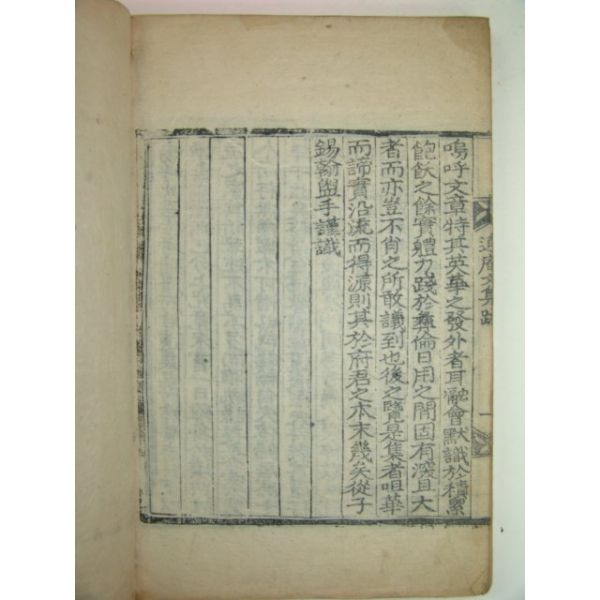 嗚呼文章特其英華之發外者耳瀜會默識於積累
飽飫之餘實體力踐於彛倫日用之間固有深且大
者而亦豈不肖之所敢議到也後之覽是集者咀華
而諦實沿流而得源則其於府君之本末幾矣從子
錫翰盥手謹識
文集跋
一